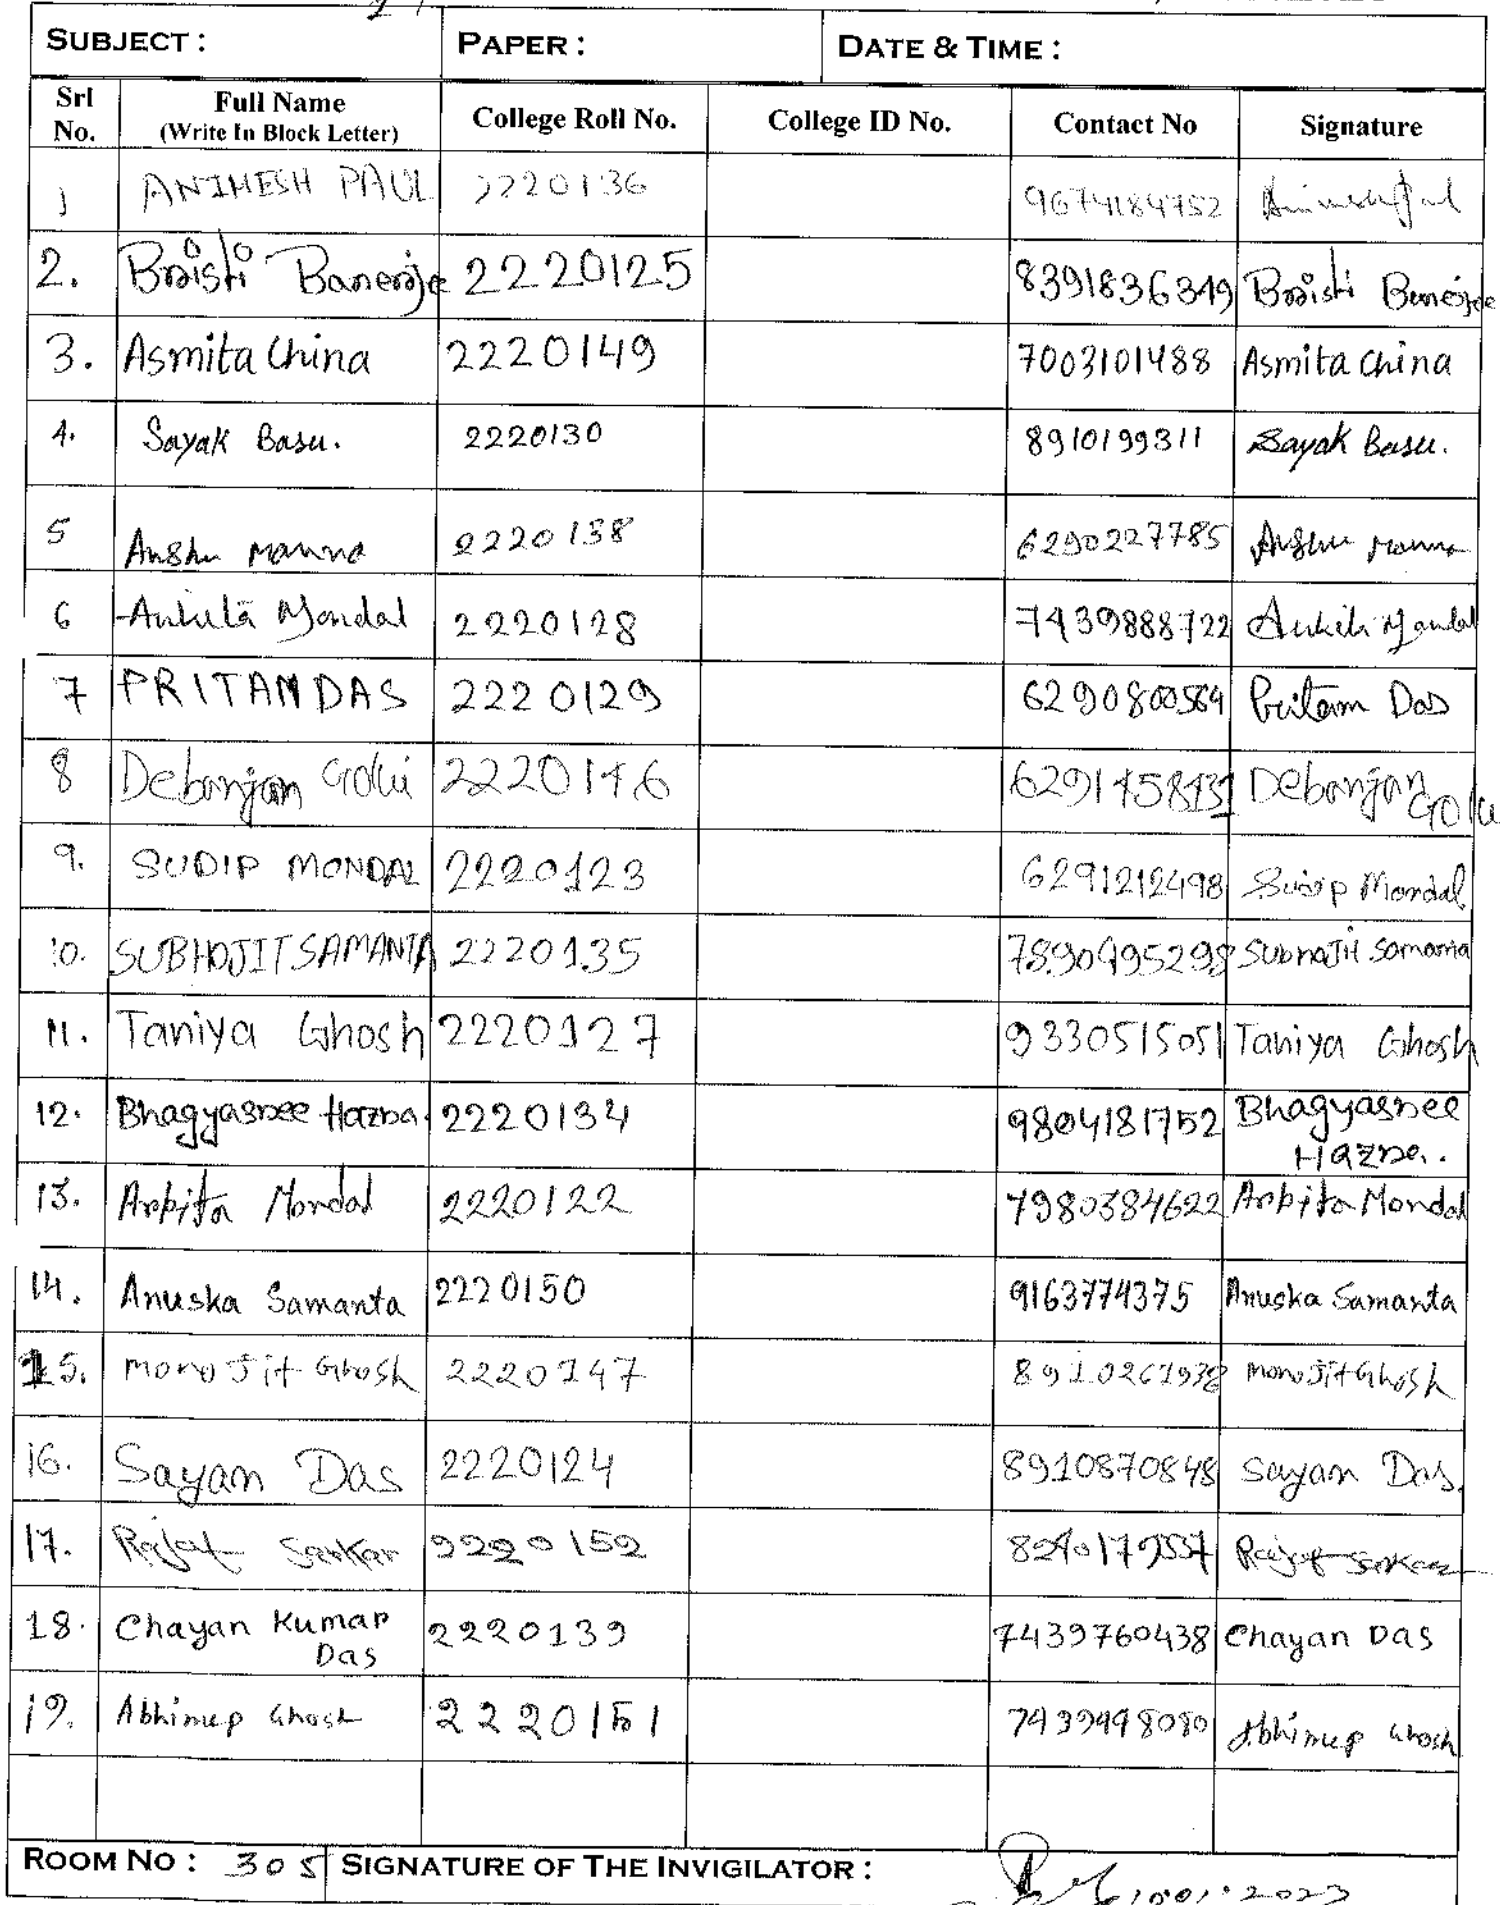 SUBJECT : PAPER : DATE & TIME :
Srl No. Full Name (Write In Block Letter) College Roll No. College ID No. Contact No Signature
1 ANIMESH PAUL 2220136 9674184752
2. Bristi Banerje 2220125 8391836349 Bristi Banerjee
3. Asmita China 2220149 7003101488 Asmita China
4. Sayak Basu. 2220130 8910199311 Sayak Basu.
5 Anshu Manna 2220138 6290227785 Anshu Manna
6 Ankita Mondal 2220128 7439888722 Ankita Mondal
7 PRITAM DAS 2220129 6290800564 Pritam Das
8 Debanjan Golui 2220146 Debanjan Golui
9. SUDIP MONDAL 2220123 6291212498 Sudip Mondal
10. SUBHOJIT SAMANTA 2220135 7890495298 Subhojit Samanta
11. Taniya Ghosh 2220127 9330515051 Taniya Ghosh
12. Bhagyasree Hazra. 2220134 9804181752 Bhagyasree Hazra.
13. Arpita Mondal 2220122 7980384622 Arpita Mondal
14. Anuska Samanta 2220150 9163774375 Anuska Samanta
15. Monojit Ghosh 2220147 8910261938 Monojit Ghosh
16. Sayan Das 2220124 8910870848 Sayan Das.
17. Rajat Sarkar 2220152 Rajat Sarkar
18. Chayan Kumar Das 2220139 7439760438 Chayan Das
19. Abhinup Ghosh 2220151 7439498080 Abhinup Ghosh
ROOM NO : 305 SIGNATURE OF THE INVIGILATOR :